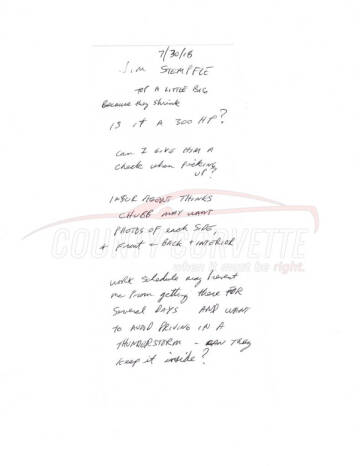 7/30/18
Jim STEMPFLE
TOP A LITTLE BIG
Because they shrink
IS IT A 300 HP?
Can I GIVE HIM A
check when picking
UP?
INSUR AGENT THINKS
CHUBB MAY WANT
PHOTOS OF each SIDE,
+ Front + BACK + INTERIOR
COUNTY CORVETTE
when it must be right.
WORK Schedule may prevent
me from getting there FOR
Several DAYS AND WANT
TO AVOID DRIVING IN A
THUNDERSTORM - CAN THEY
keep it inside?